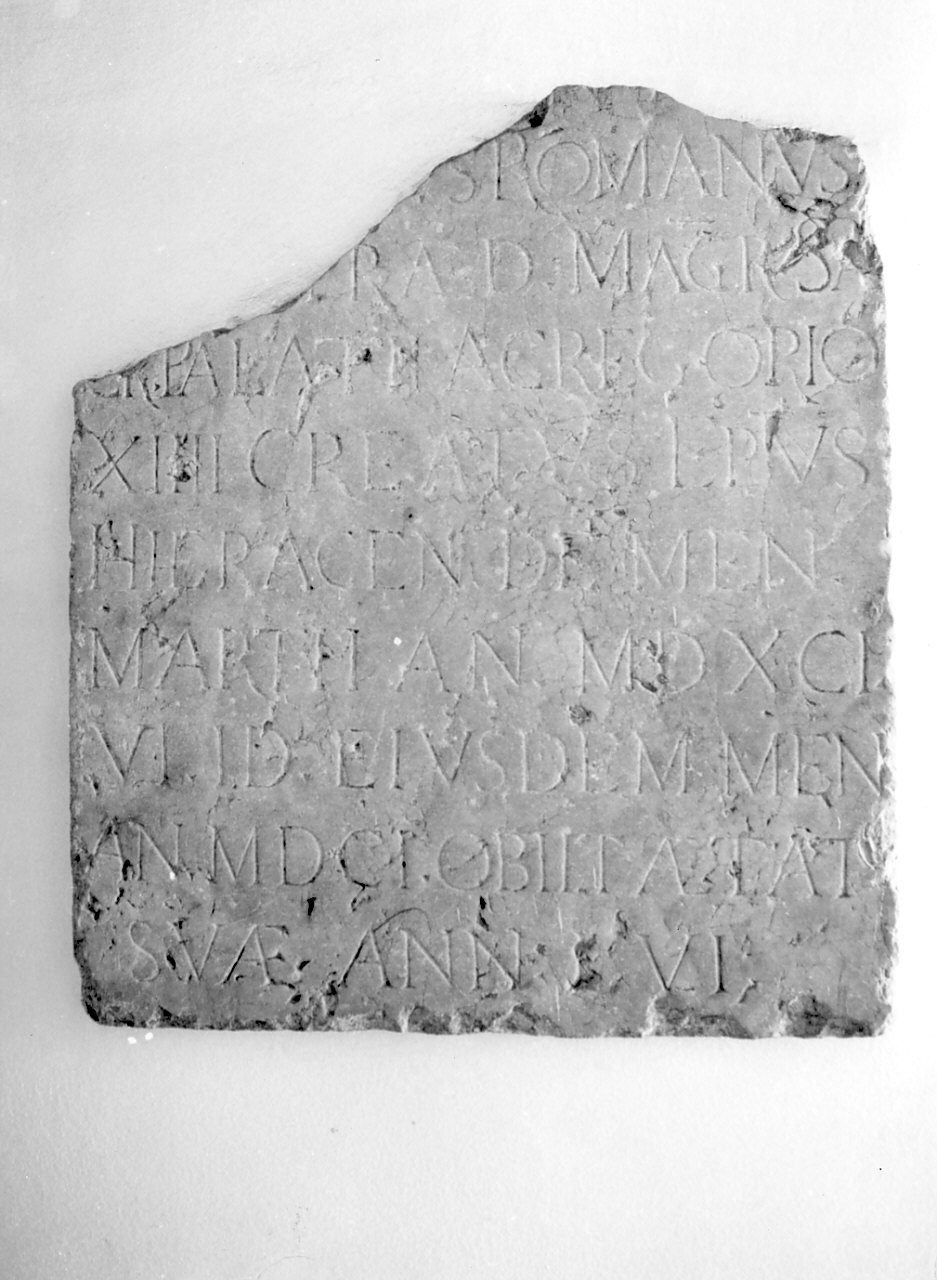 S ROMANVS
RA. D. MAGR SA
CRI PALATII A GREGORIO
XIIII CREATVS EPVS
HIERACEN DE MEN
MARTII AN MDXCI
VI. ID. EIVSDEM MEN
AN. MDCI. OBIIT ÆTAT
SVÆ ANN LVI